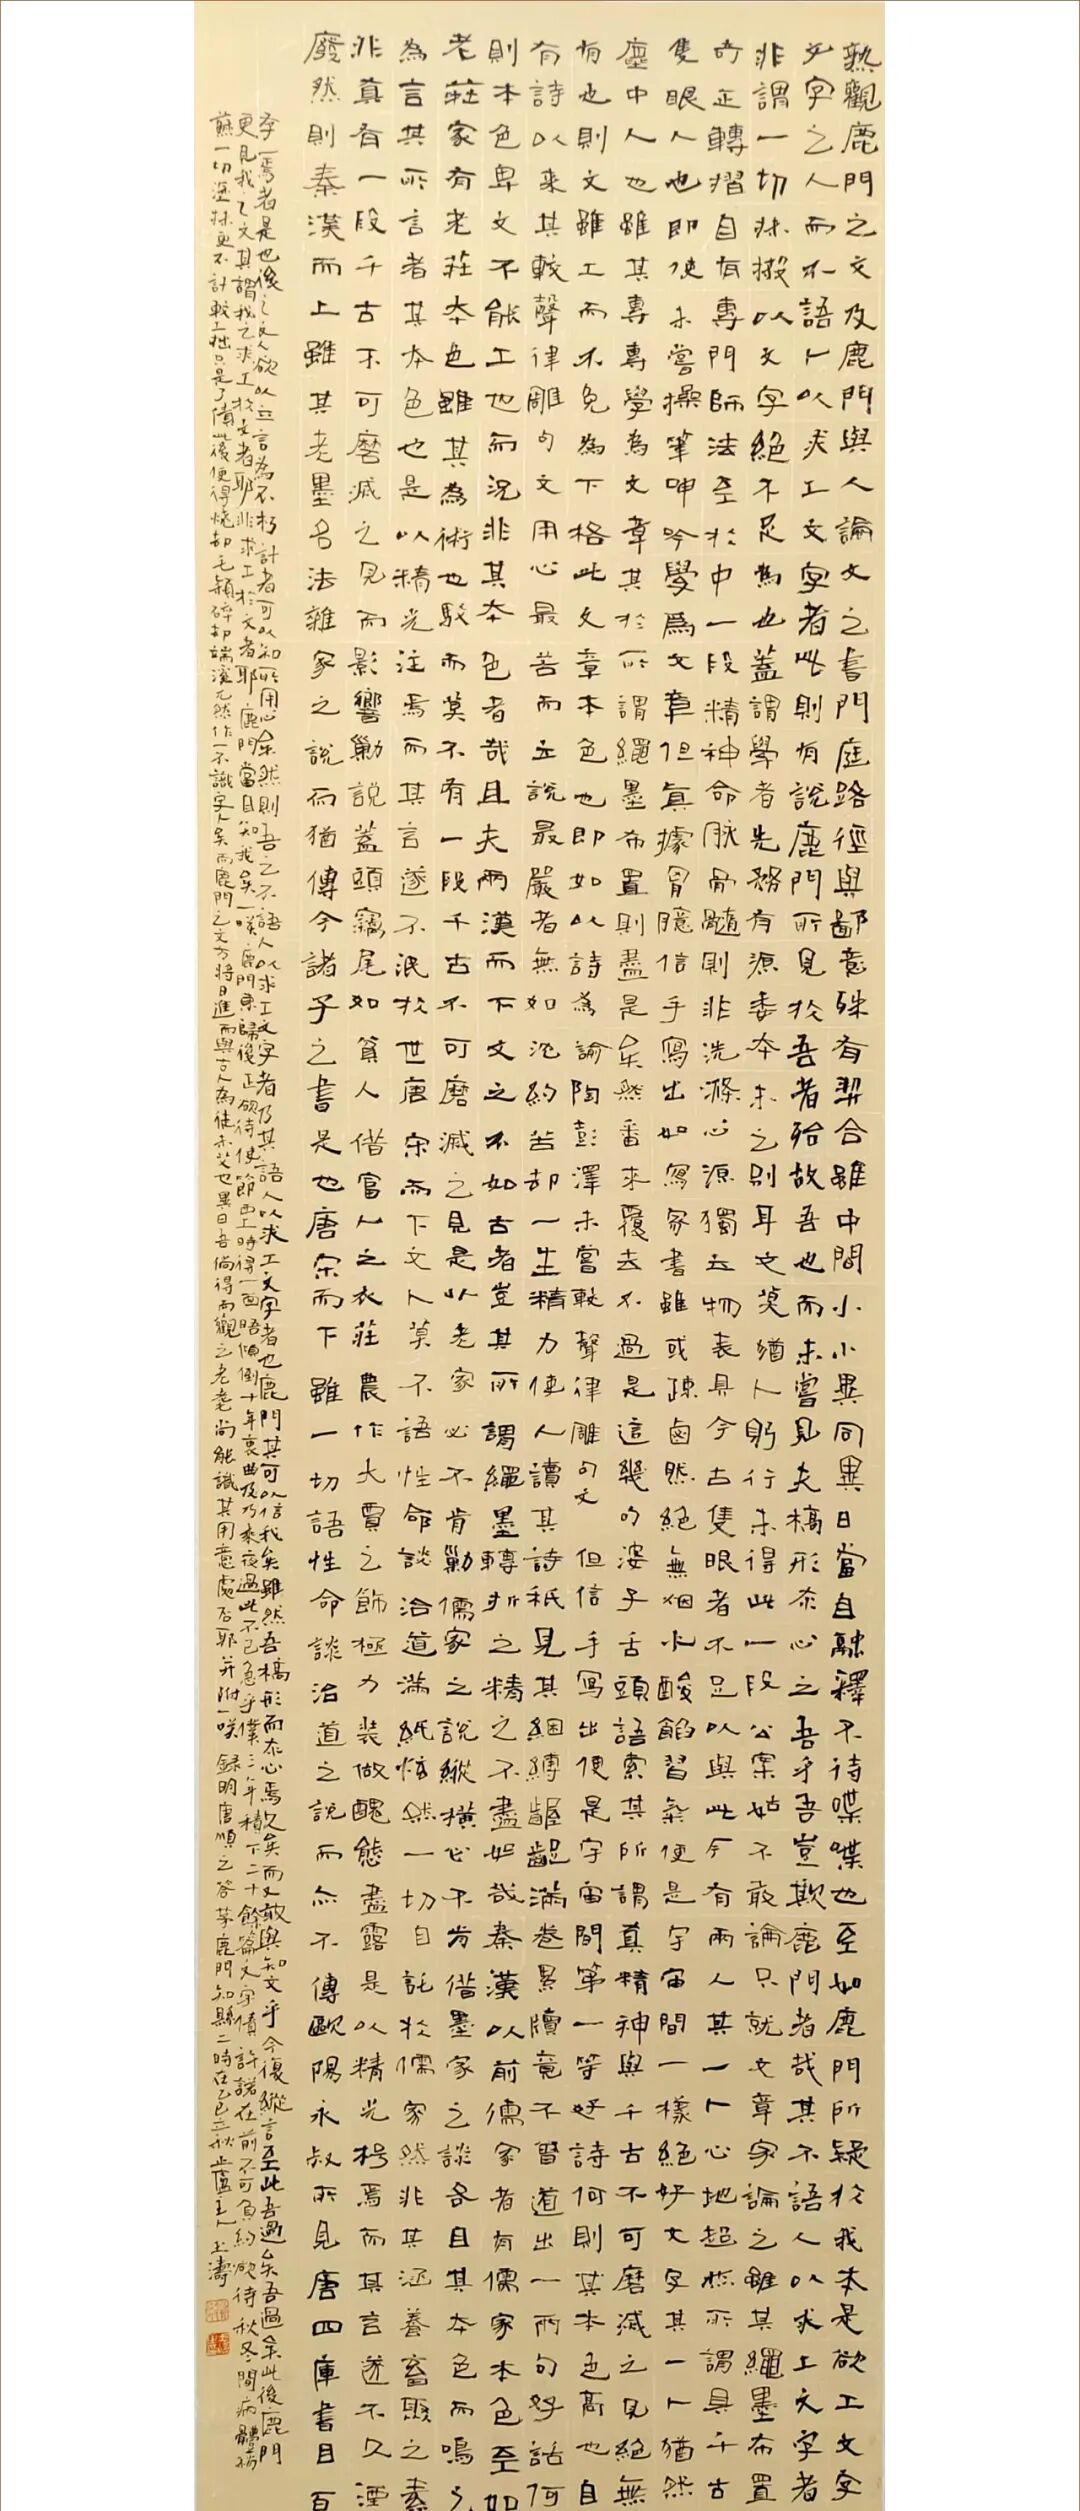 熟觀鹿門之文及鹿門與人論文之書門庭路徑與鄙意殊有契合雖中間小小異同異日當自融釋不待喋喋也至如鹿門所疑於我本是欲工文字
乎字之人而不語人以求工文字者此則有說鹿門所見於吾者殆故吾也而未嘗見夫槁形灰心之吾乎吾豈欺鹿門者哉其不語人以求工文字者
非謂一切抹搬以文字絕不足為也蓋謂學者先務有源委本末之別耳文莫猶人躬行未得此一段公案姑不敢論只就文章家論之雖其繩墨布置
奇正轉摺自有專門師法至於中一段精神命脈骨髓則非洗滌心源獨立物表具今古隻眼者不足以與此今有兩人其一人心地超然所謂具千古
隻眼人也即使未嘗操筆呻吟學為文章但直據胸臆信手寫出如寫家書雖或疎鹵然絕無烟火酸餡習氣便是宇宙間一樣絕好文字其一人猶然
塵中人也雖其專專學為文章其於所謂繩墨布置則盡是矣然番來覆去不過是這幾句婆子舌頭語索其所謂真精神與千古不可磨滅之見絕無
有也則文雖工而不免為下格此文章本色也即如以詩為諭陶彭澤未嘗較聲律雕句文但信手寫出便是宇宙間第一等好詩何則其本色高也自
有詩以來其較聲律雕句文用心最苦而立說最嚴者無如沈約苦却一生精力使人讀其詩秖見其綑縛齷齪滿卷累牘竟不曾道出一兩句好話何
則本色卑文不能工也而況非其本色者哉且夫兩漢而下文之不如古者豈其所謂繩墨轉折之精之不盡如哉秦漢以前儒家者有儒家本色至如
老莊家有老莊本色雖其為術也駁而莫不有一段千古不可磨滅之見是以老家必不肯勦儒家之說縱橫必不肯借墨家之談各自其本色而鳴之
為言其所言者其本色也是以精光注焉而其言遂不泯於世唐宋而下文人莫不語性命談治道滿紙炫然一切自託於儒家然非其涵養畜聚之素
非真有一段千古不可磨滅之見而影響勦說蓋頭竊尾如貧人借富人之衣莊農作大賈之飾極力裝做醜態盡露是以精光枵焉而其言遂不久湮
廢然則秦漢而上雖其老墨名法雜家之說而猶傳今諸子之書是也唐宋而下雖一切語性命談治道之說而亦不傳歐陽永叔所見唐四庫書目百
存一焉者是也後之文人欲以立言為不朽計者可以知所用心矣然則吾之不語人以求工文字者乃其語人以求工文字者也鹿門其可以信我矣雖然吾槁形而灰心焉久矣而又敢與知文乎今復縱言至此吾過矣吾過矣此後鹿門
更見我之文其謂我之求工於文者耶非求工於文者耶鹿門當自知我矣一咲鹿門東歸後正欲待使節西上時得一面晤傾倒十年衷曲及乃乘夜過此不已急乎僕三年積下二十餘篇文字債許諾在前不可負約欲待秋冬間病體稍
蘇一切塗抹更不計較工拙只是了債此後便得燒却毛穎碎却端溪兀然作一不識字人矣而鹿門之文方將日進而與古人為徒未艾也異日吾倘得而觀之老耄尚能識其用意處否耶并附一咲 錄明唐順之答茅鹿門知縣二時在乙巳立秋止廬主人王濤